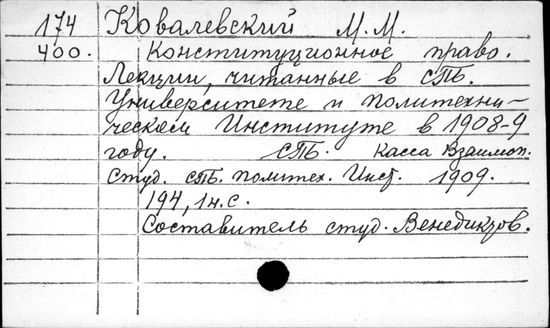 174 Ковалевский М.М.
400. Конституционное право.
Лекции, читанные в СПб.
Университете и политехни-
ческом Институте в 1908-9
году. СПБ. Касса Взаимоп.
Студ. СПб. политех. Инст. 1909.
194, 1н.с.
Составитель студ. Венедиктов.